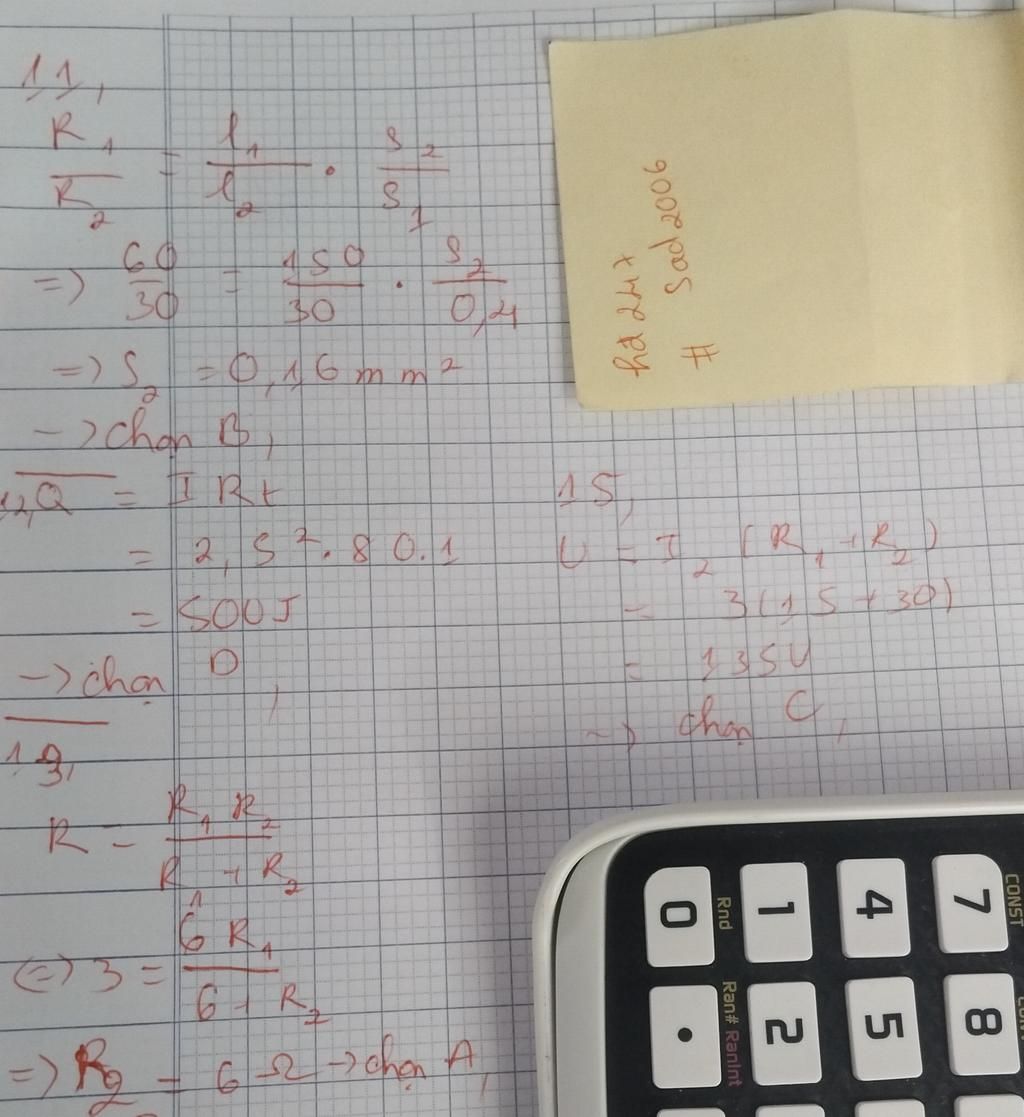 11,
R1/R2 = l1/l2 . S2/S1
=> 60/30 = 150/30 . S2/0,4
=> S2 = 0,16 mm²
-> chọn B,
12, Q = I R t
= 2,5² . 80.1
= 500J
-> chọn D,
13,
R = R1 R2 / R1 + R2
(=) 3 = 6 R1 / 6 + R2
=> R2 = 6 Ω -> chọn A,
15,
U = I2 (R1 + R2)
= 3(15 + 30)
= 135V
-> chọn C,
# Sad2006
CONST
7
4
1
0
Rnd
8
5
2
•
Ran# RanInt